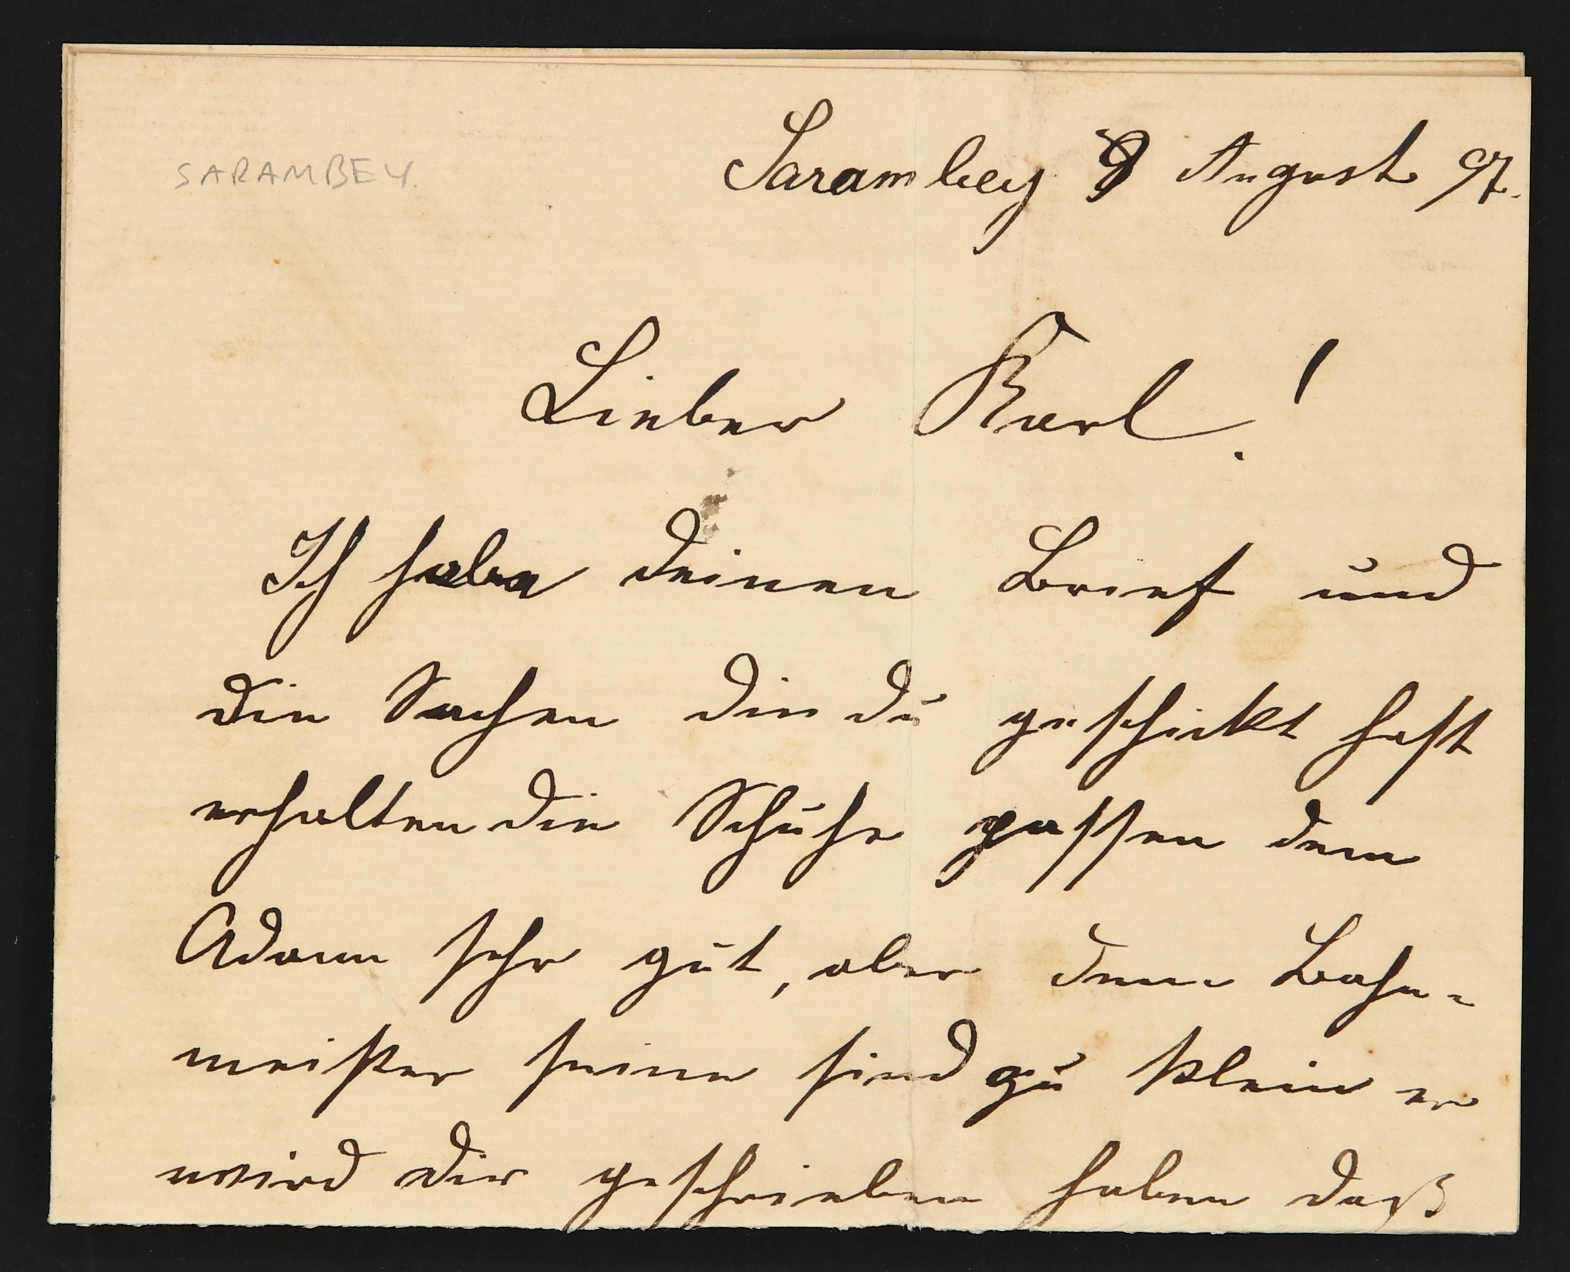 SARAMBEY.
Sarambey 8 August 97.
Lieber Karl!
Ich habe deinen Brief und
die Sachen die du geschickt hast
erhalten die Schuhe passen dem
Adam sehr gut, aber dem Bahn-
meister seine sind zu klein er
wird dir geschrieben haben daß